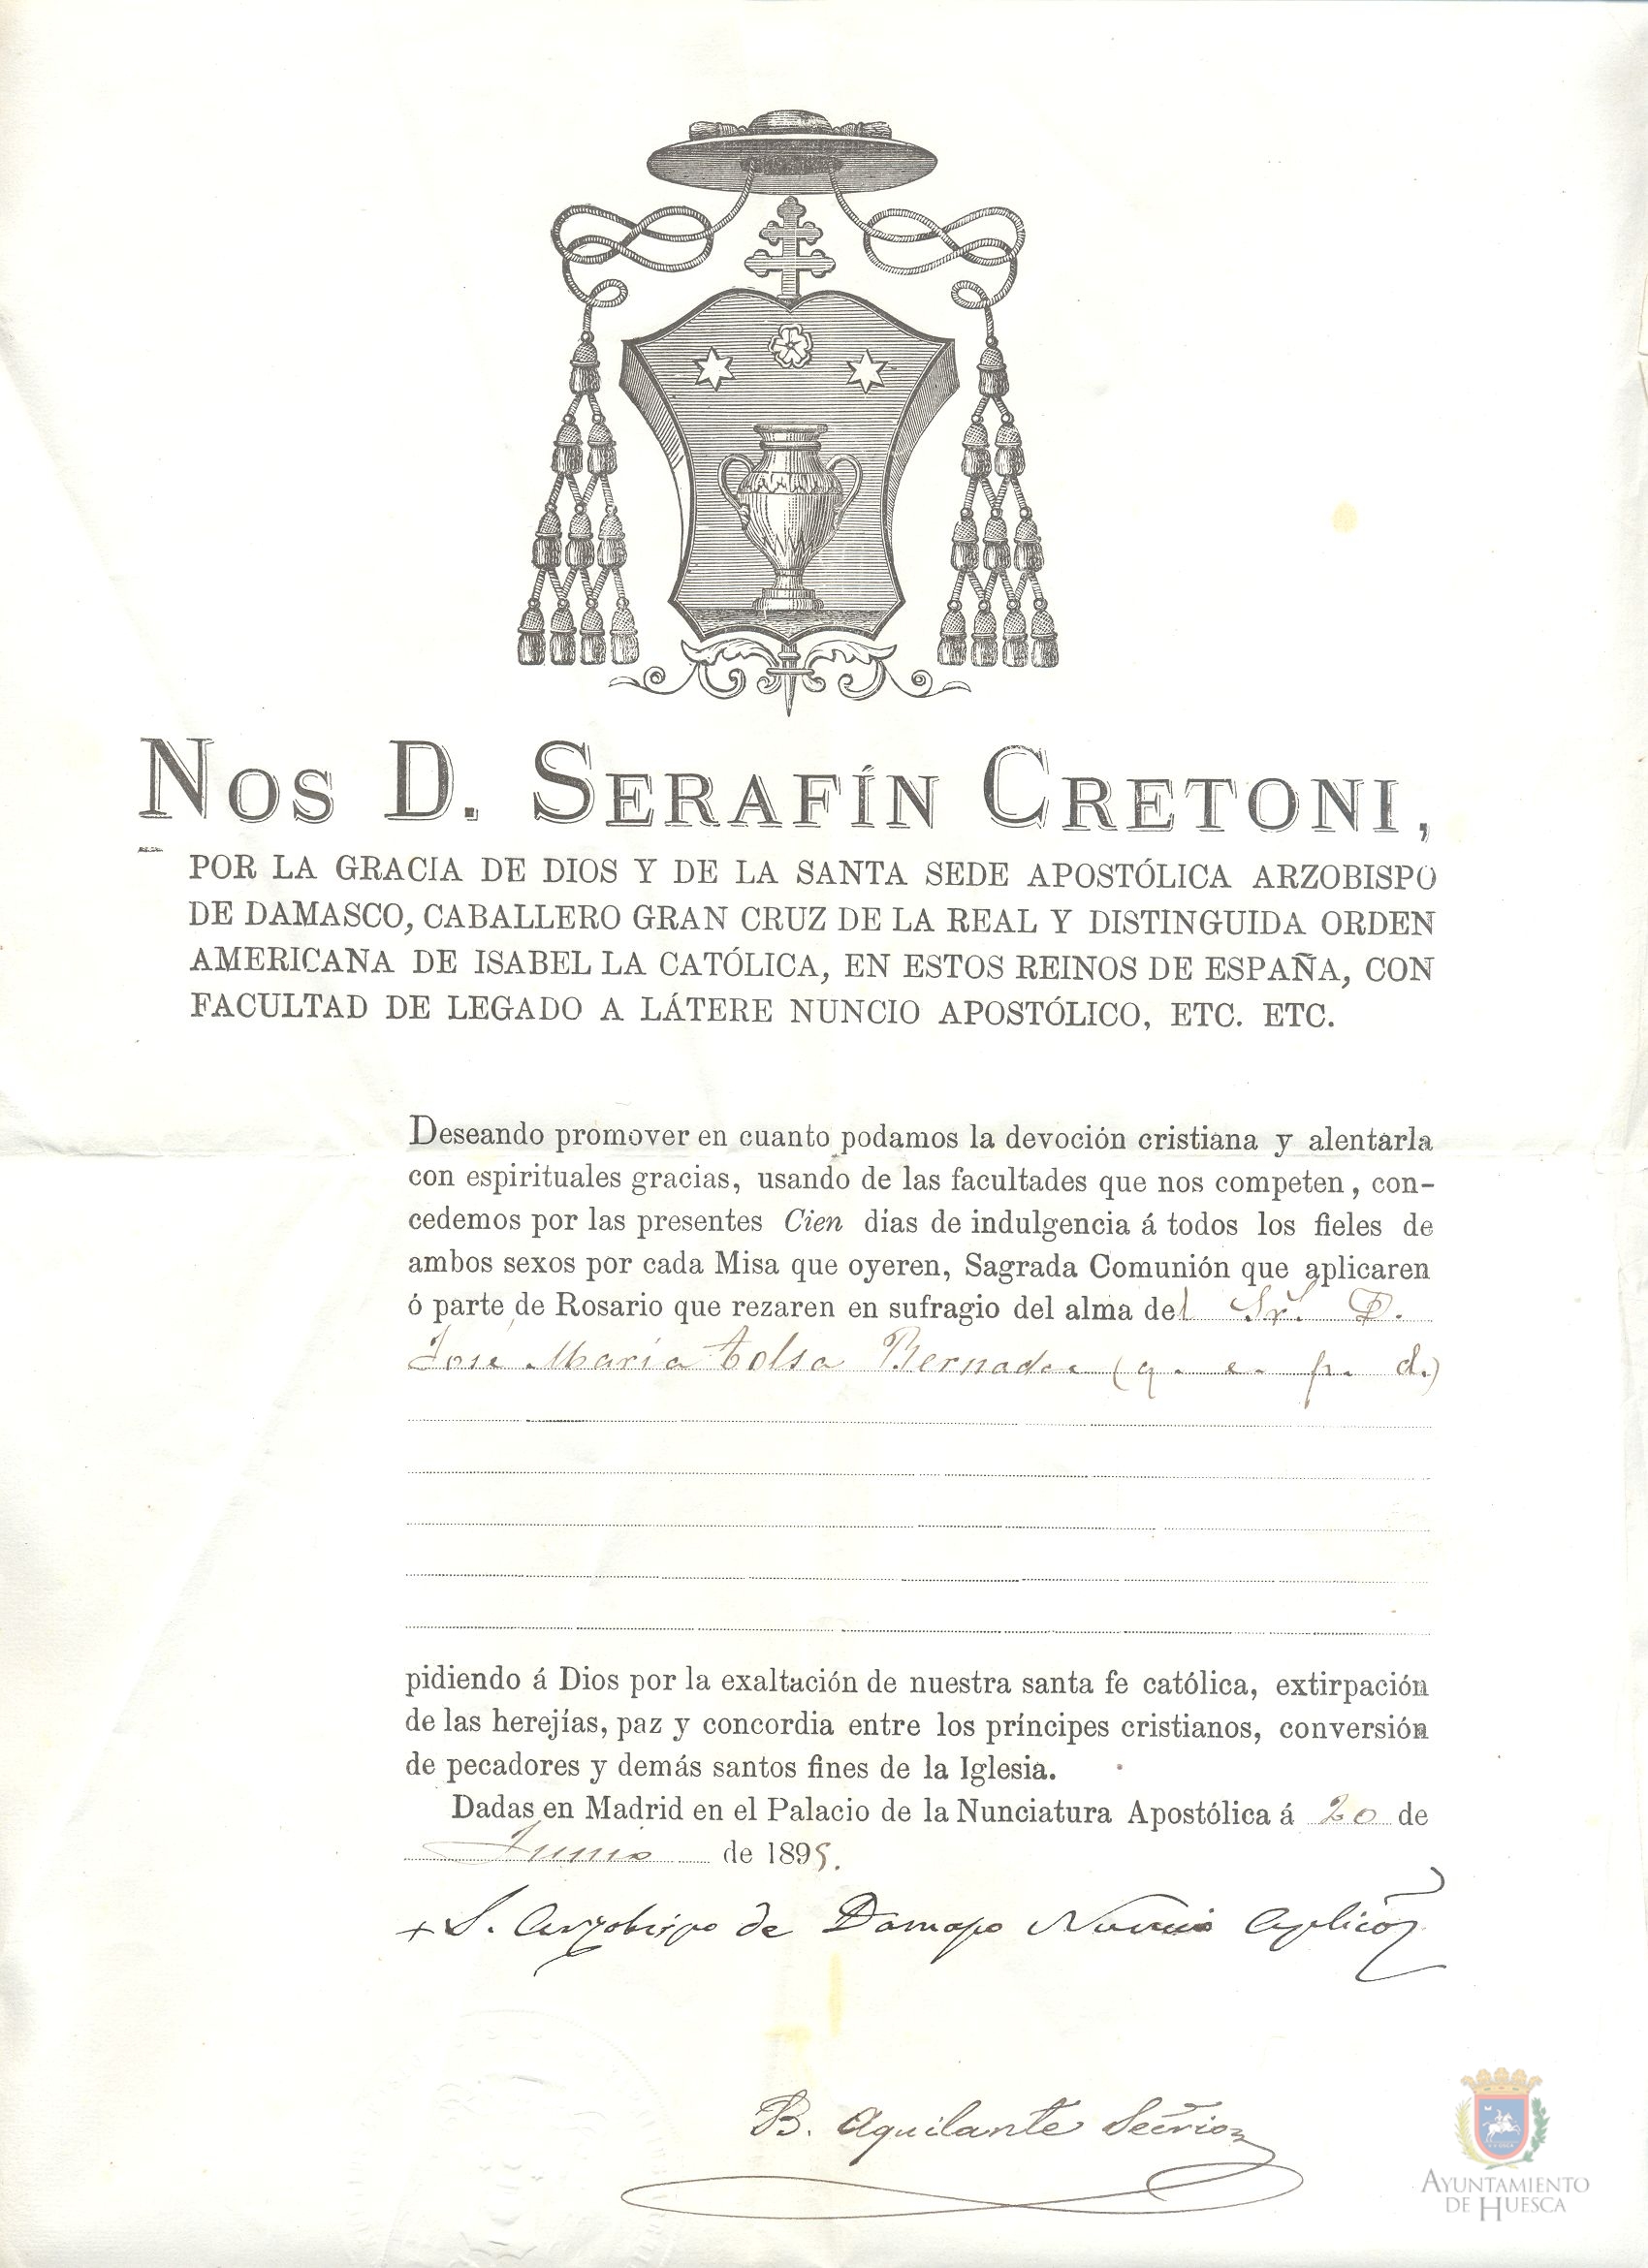 NOS D. SERAFÍN CRETONI,
POR LA GRACIA DE DIOS Y DE LA SANTA SEDE APOSTÓLICA ARZOBISPO
DE DAMASCO, CABALLERO GRAN CRUZ DE LA REAL Y DISTINGUIDA ORDEN
AMERICANA DE ISABEL LA CATÓLICA, EN ESTOS REINOS DE ESPAÑA, CON
FACULTAD DE LEGADO A LÁTERE NUNCIO APOSTÓLICO, ETC. ETC.
Deseando promover en cuanto podamos la devoción cristiana y alentarla
con espirituales gracias, usando de las facultades que nos competen, con-
cedemos por las presentes Cien días de indulgencia á todos los fieles de
ambos sexos por cada Misa que oyeren, Sagrada Comunión que aplicaren
ó parte de Rosario que rezaren en sufragio del alma del Sr. D.
José María Tolsa (q. e. p. d.)
pidiendo á Dios por la exaltación de nuestra santa fe católica, extirpación
de las herejías, paz y concordia entre los príncipes cristianos, conversión
de pecadores y demás santos fines de la Iglesia.
Dadas en Madrid en el Palacio de la Nunciatura Apostólica á 20 de
Junio de 1895.
+ S. Arzobispo de Damasco Nuncio Aplico
B. Aquilante Secrio
AYUNTAMIENTO
DE HUESCA